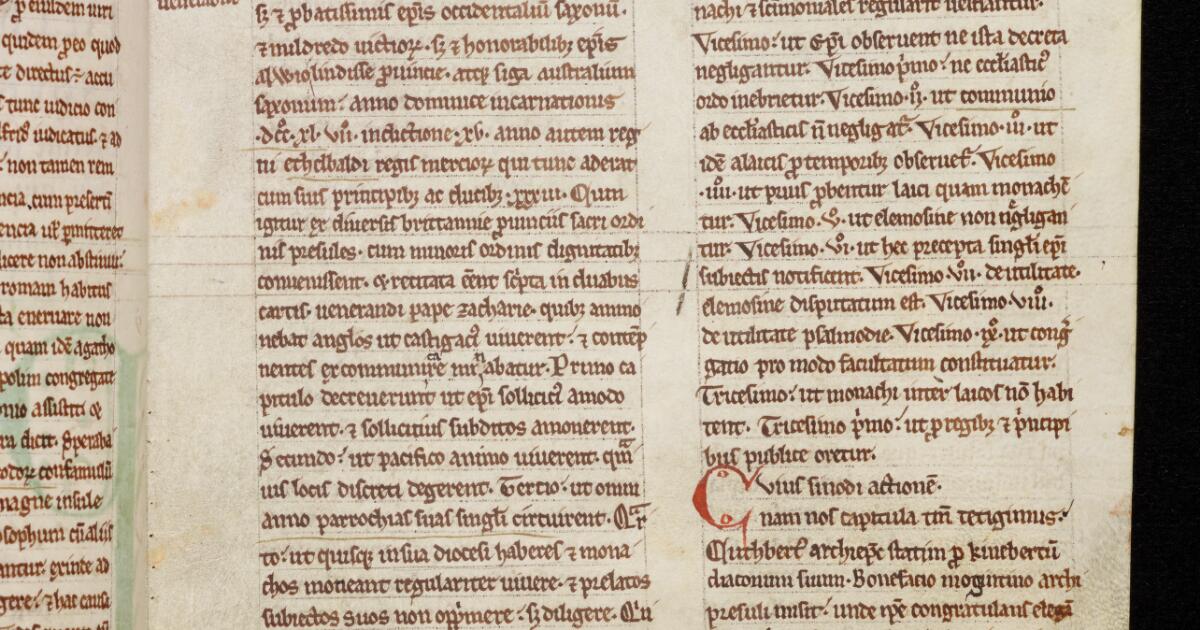 p eiusdem uiri
quidem p eo quod
te directus ÷ accu
tune iudicio con
iudicatus. ⁊ ad
non tamen rem
cum presertī
licere non abstinui
romam habitus
ta eneruare non
quam idē agatho
polim congregate
assistiti &
ra dicit. Speraba
magne insule
sophum
antur. exinde ad
gere. ⁊ hac causa
uenerabilibz
sꝫ ⁊ ꝓbatissimis ep̄is occidentaliū saxonū.
⁊ mildredo uictioꝝ. sꝫ ⁊ honorabilibꝫ ep̄is
alwio lindisse ꝓuincie. atqꝫ siga australium
saxonum. anno dominice incarnationis
.dcc̄. xl. vii. indictione. xv. anno autem reg
ni ethelbaldi regis mercioꝝ qui tunc aderat
cum suis principibꝫ ac ducibꝫ. xxxiii. Qum
igitur ex diuersis brittannie ꝓuinciis sacri ordi
nis presules. cum minoris ordinis dignitatibꝫ
conuenissent. & recitata eēnt sc̄pta in duabus
cartis uenerandi pape zacharie. quibꝫ ammo
nebat anglos ut castigaci᷒ uiuerent. ⁊ contēp
nentes excommunicare minabatur. Primo ca
pitulo decreuerunt ut ep̄i sollicici᷒ amodo
uiuerent. ⁊ sollicitius subditos amonerent.
Secundo. ut pacifico animo uiuerent. quāuis
uis locis discreti degerent. Tertio. ut omni
anno parrochias suas singl̄i circuirent. Qr̄
to. ut quisqꝫ in sua diocesi haberes ⁊ mona
chos moneant regulariter uiuere. ⁊ prelatos
subiectos suos non opp̄mere. sꝫ diligere. Qui
nachi ⁊ sc̄imoniales regularit̄ uestiantur.
Vicesimo. ut & ep̄i obseruent ne ista decreta
negligantur. Vicesimo pͥmo. ne eccl̄iastic᷒
ordo inebrietur. Vicesimo. ii᷒. ut communio
ab eccl̄iasticis n̄ negligat᷑. Vicesimo. iii᷒. ut
idē a laicis ꝓ temporibꝫ obseruet᷑. Vicesimo
.iiii᷒. ut prius ꝓbentur laici quam monachē
tur. Vicesimo. v᷒. ut elemosine non nͥgligan
tur. Vicesimo. vi᷒. ut hec precepta singl̄i ep̄i
subiectis notificent. Vicesimo. vii᷒. de utilitate
elemosine disputatum est. Vicesimo. viii᷒.
de utilitate psalmodie. Vicesimo. ix᷒. ut congͤ
gatio pro modo facultatum constituatur.
Tricesimo. ut monachi inter laicos nō habi
tent. Tricesimo pͥmo. ut ꝓ regibꝫ ⁊ pͥncipi
bus publice oretur.
Cuius sinodi actionē.
nam nos capitula tm̄ tetigimus.
Cuthbert᷒ archiep̄c statim ꝑ kinebertū
diaconum suum. Bonefacio mogontino archi
presuli misit. unde ip̄e congratulans elegā